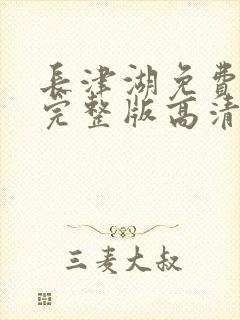 長津湖免費
完整版高清
三麦大叔